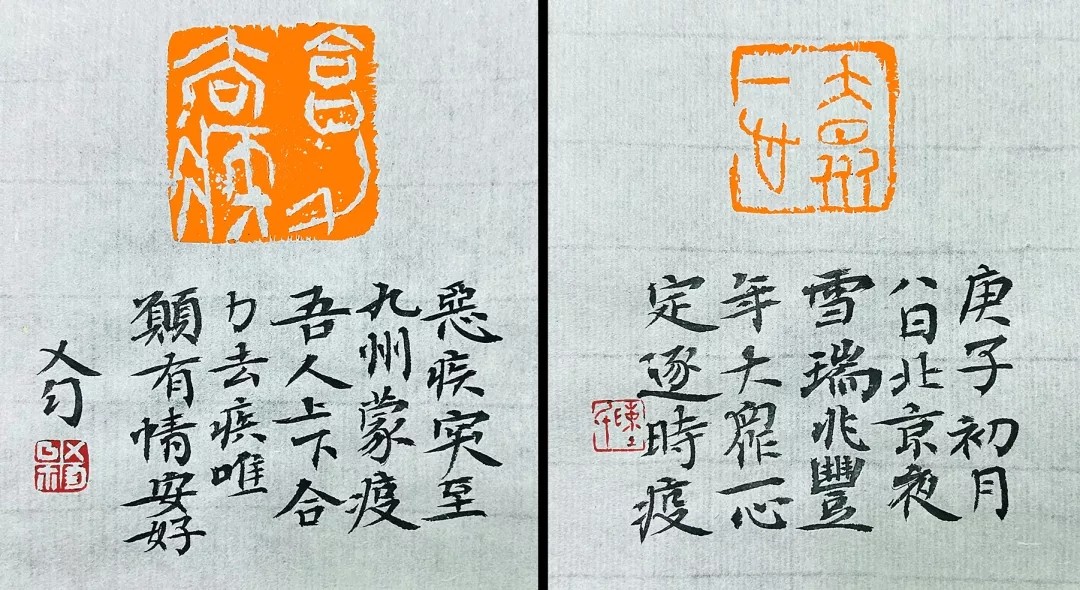 惡疾突至
九州蒙疫
吾人上下合
力去疾唯
願有情安好
大眾
一心
庚子初月
八日北京夜
雪瑞兆豐
年大眾一心
定逐時疫